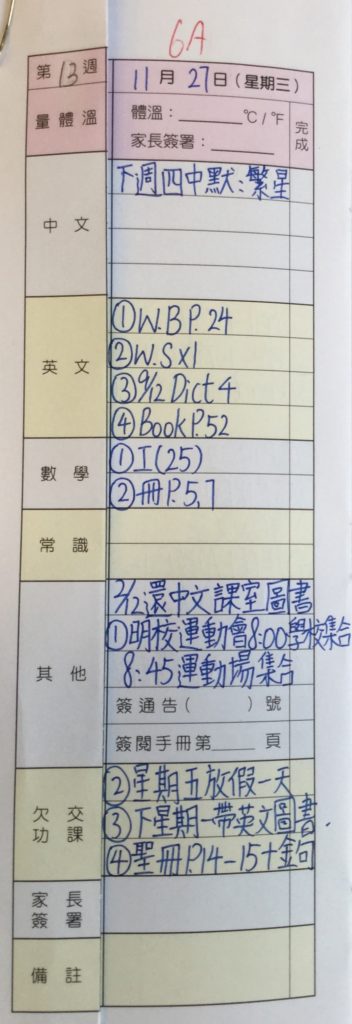 6A
第13週 11月27日(星期三)
量體溫 體溫：______℃/℉ 完成
家長簽署：______
中文 下週四中默：繁星
英文 ①W.B P. 24
②W.S x1
③9/12 Dict 4
④Book P.52
數學 ①I(25)
②冊P.5,7
常識
其他 2/12還中文課室圖書
①明校運動會8:00學校集合
8:45運動場集合
簽通告( )號
簽閱手冊第____頁
欠交功課 ②星期五放假一天
③下星期一帶英文圖書.
④聖冊P.14-15+金句
家長簽署
備註